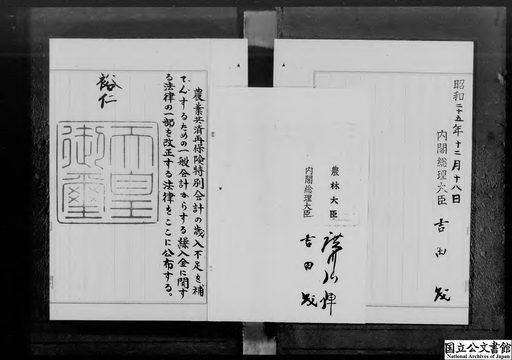 昭和二十五年十二月十八日
内閣総理大臣 吉田茂
農林大臣 廣川弘禪
内閣総理大臣 吉田茂
農業共済再保険特別会計の歳入不足を補
てんするための一般会計からする繰入金に関す
る法律の一部を改正する法律をここに公布する。
裕仁
天皇
御璽
国立公文書館
National Archives of Japan